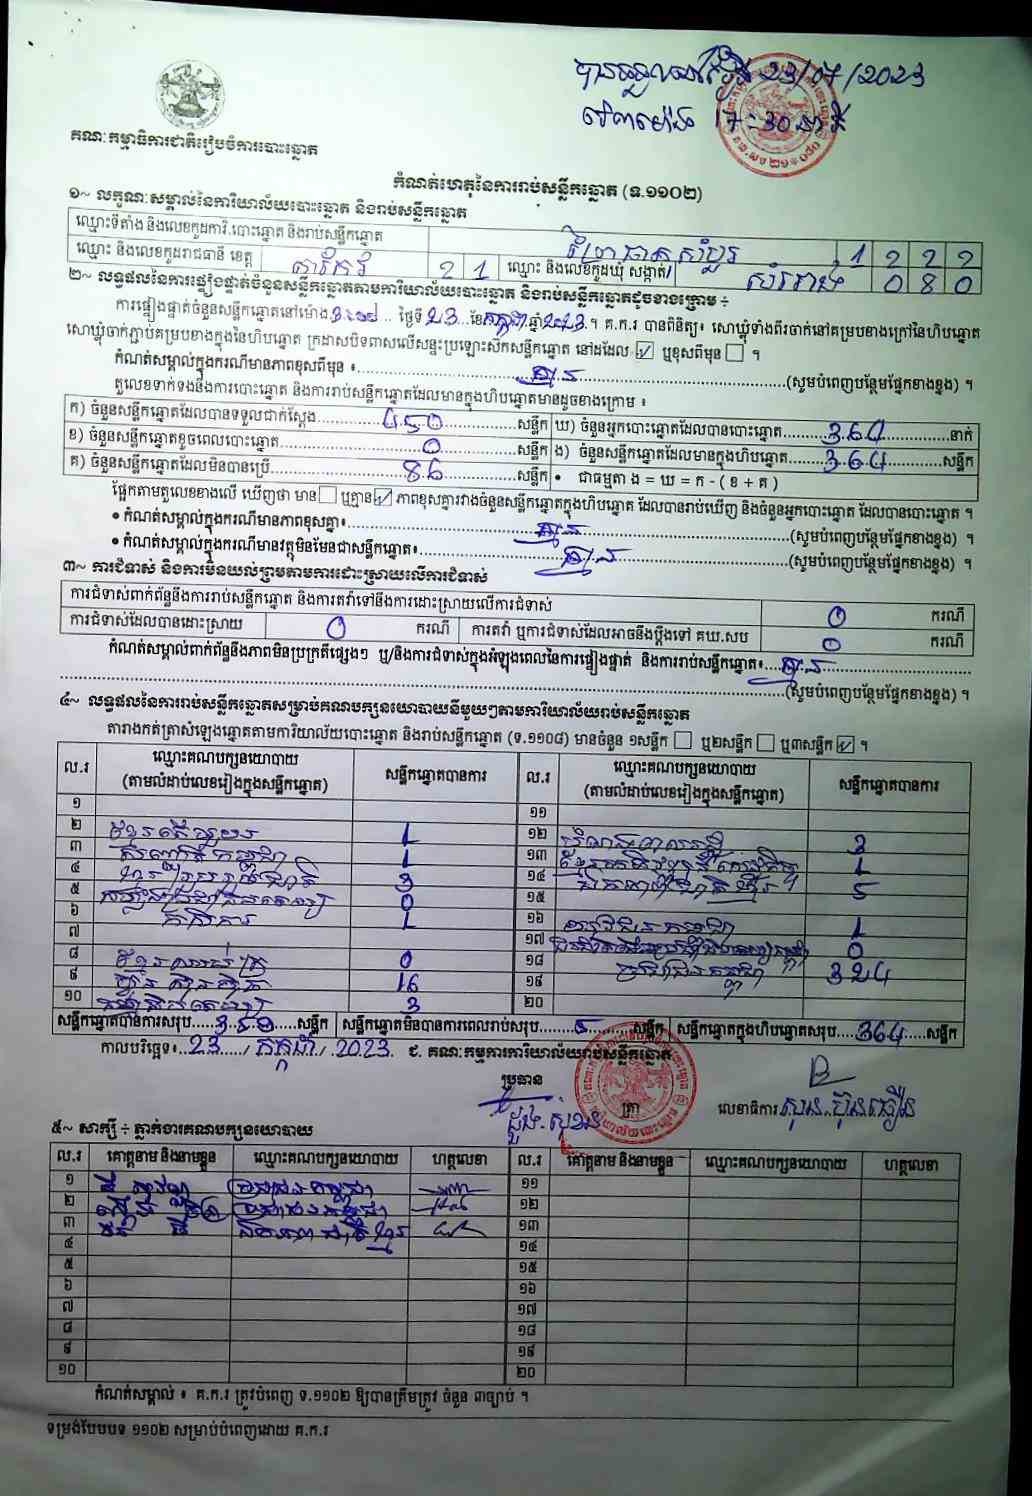 បានទទួលនៅថ្ងៃទី 23/07/2023
វេលាម៉ោង 17:30 នាទី
គណៈកម្មាធិការជាតិរៀបចំការបោះឆ្នោត
កំណត់ហេតុនៃការរាប់សន្លឹកឆ្នោត (ទ.១១០២)
១~ លក្ខណៈសម្គាល់នៃការិយាល័យបោះឆ្នោត និងរាប់សន្លឹកឆ្នោត
ឈ្មោះទីតាំង និងលេខកូដការិ.បោះឆ្នោត និងរាប់សន្លឹកឆ្នោត
ឈ្មោះ និងលេខកូដរាជធានី ខេត្ត តាកែវ 2 1 ឈ្មោះ និងលេខកូដឃុំ សង្កាត់/ សំរោង 0 8 0
២~ លទ្ធផលនៃការផ្ទៀងផ្ទាត់ចំនួនសន្លឹកឆ្នោតតាមការិយាល័យបោះឆ្នោត និងរាប់សន្លឹកឆ្នោតដូចខាងក្រោម ÷
ការផ្ទៀងផ្ទាត់ចំនួនសន្លឹកឆ្នោតនៅម៉ោង ថ្ងៃទី 23 ខែ កក្កដា ឆ្នាំ 2023 ។ គ.ក.រ បានពិនិត្យ៖ សោឃ្លុំទាំងពីរចាក់នៅគម្របខាងក្រៅនៃហិបឆ្នោត
សោឃ្លុំចាក់ភ្ជាប់គម្របខាងក្នុងនៃហិបឆ្នោត ក្រដាសបិទពាសលើសន្ទះប្រឡោះសឹកសន្លឹកឆ្នោត នៅដដែល ☑ ឬខុសពីមុន ☐ ។
កំណត់សម្គាល់ក្នុងករណីមានភាពខុសពីមុន ៖ គ្មាន (សូមបំពេញបន្ថែមផ្នែកខាងខ្នង) ។
តួលេខទាក់ទងនឹងការបោះឆ្នោត និងការរាប់សន្លឹកឆ្នោតដែលមានក្នុងហិបឆ្នោតមានដូចខាងក្រោម ៖
ក) ចំនួនសន្លឹកឆ្នោតដែលបានទទួលជាក់ស្តែង 450 សន្លឹក ឃ) ចំនួនអ្នកបោះឆ្នោតដែលបានបោះឆ្នោត 364 នាក់
ខ) ចំនួនសន្លឹកឆ្នោតខូចពេលបោះឆ្នោត 0 សន្លឹក ង) ចំនួនសន្លឹកឆ្នោតដែលមានក្នុងហិបឆ្នោត 364 សន្លឹក
គ) ចំនួនសន្លឹកឆ្នោតដែលមិនបានប្រើ 86 សន្លឹក • ជាធម្មតា ង = ឃ = ក - ( ខ + គ )
ផ្អែកតាមតួលេខខាងលើ ឃើញថា មាន ☐ ឬគ្មាន ☑ ភាពខុសគ្នារវាងចំនួនសន្លឹកឆ្នោតក្នុងហិបឆ្នោត ដែលបានរាប់ឃើញ និងចំនួនអ្នកបោះឆ្នោត ដែលបានបោះឆ្នោត ។
• កំណត់សម្គាល់ក្នុងករណីមានភាពខុសគ្នា៖ គ្មាន (សូមបំពេញបន្ថែមផ្នែកខាងខ្នង) ។
• កំណត់សម្គាល់ក្នុងករណីមានវត្ថុមិនមែនជាសន្លឹកឆ្នោត៖ គ្មាន (សូមបំពេញបន្ថែមផ្នែកខាងខ្នង) ។
៣~ ការជំទាស់ និងការមិនយល់ព្រមតាមការដោះស្រាយលើការជំទាស់
ការជំទាស់ពាក់ព័ន្ធនឹងការរាប់សន្លឹកឆ្នោត និងការតវ៉ាទៅនឹងការដោះស្រាយលើការជំទាស់ 0 ករណី
ការជំទាស់ដែលបានដោះស្រាយ 0 ករណី ការតវ៉ា ឬការជំទាស់ដែលអាចនឹងប្តឹងទៅ គឃ.សប 0 ករណី
កំណត់សម្គាល់ពាក់ព័ន្ធនឹងភាពមិនប្រក្រតីផ្សេងៗ ឬ/និងការជំទាស់ក្នុងអំឡុងពេលនៃការផ្ទៀងផ្ទាត់ និងការរាប់សន្លឹកឆ្នោត៖ គ្មាន
(សូមបំពេញបន្ថែមផ្នែកខាងខ្នង) ។
៤~ លទ្ធផលនៃការរាប់សន្លឹកឆ្នោតសម្រាប់គណបក្សនយោបាយនីមួយៗតាមការិយាល័យរាប់សន្លឹកឆ្នោត
តារាងកត់ត្រាសំឡេងឆ្នោតតាមការិយាល័យបោះឆ្នោត និងរាប់សន្លឹកឆ្នោត (ទ.១១០៨) មានចំនួន ១សន្លឹក ☐ ឬ២សន្លឹក ☐ ឬ៣សន្លឹក ☑ ។
ល.រ ឈ្មោះគណបក្សនយោបាយ (តាមលំដាប់លេខរៀងក្នុងសន្លឹកឆ្នោត) សន្លឹកឆ្នោតបានការ ល.រ ឈ្មោះគណបក្សនយោបាយ (តាមលំដាប់លេខរៀងក្នុងសន្លឹកឆ្នោត) សន្លឹកឆ្នោតបានការ
១ ១១
២ 1 ១២ 3
៣ 1 ១៣ 1
៤ 3 ១៤ 5
៥ 0 ១៥
៦ កសិករ 1 ១៦ 1
៧ ១៧ 0
៨ 0 ១៨ ប្រជាជនកម្ពុជា 324
៩ ហ៊្វុនស៊ិនប៉ិច 16 ១៩
១០ 3 ២០
សន្លឹកឆ្នោតបានការសរុប 359 សន្លឹក សន្លឹកឆ្នោតមិនបានការពេលរាប់សរុប 5 សន្លឹក សន្លឹកឆ្នោតក្នុងហិបឆ្នោតសរុប 364 សន្លឹក
កាលបរិច្ឆេទ៖ 23 / កក្កដា / 2023 ជ. គណៈកម្មការការិយាល័យរាប់សន្លឹកឆ្នោត
ប្រធាន
ត្រា
លេខាធិការ
៥~ សាក្សី ÷ ភ្នាក់ងារគណបក្សនយោបាយ
ល.រ គោត្តនាម និងនាមខ្លួន ឈ្មោះគណបក្សនយោបាយ ហត្ថលេខា ល.រ គោត្តនាម និងនាមខ្លួន ឈ្មោះគណបក្សនយោបាយ ហត្ថលេខា
១ ប្រជាជនកម្ពុជា ១១
២ ប្រជាជនកម្ពុជា ១២
៣ ១៣
៤ ១៤
៥ ១៥
៦ ១៦
៧ ១៧
៨ ១៨
៩ ១៩
១០ ២០
កំណត់សម្គាល់ ៖ គ.ក.រ ត្រូវបំពេញ ទ.១១០២ ឱ្យបានត្រឹមត្រូវ ចំនួន ៣ច្បាប់ ។
ទម្រង់បែបបទ ១១០២ សម្រាប់បំពេញដោយ គ.ក.រ